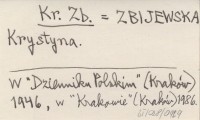 Kr. Zb. = ZBIJEWSKA
Krystyna.
W "Dzienniku Polskim" (Kraków)
1946, w "Krakowie" (Kraków) 1986.